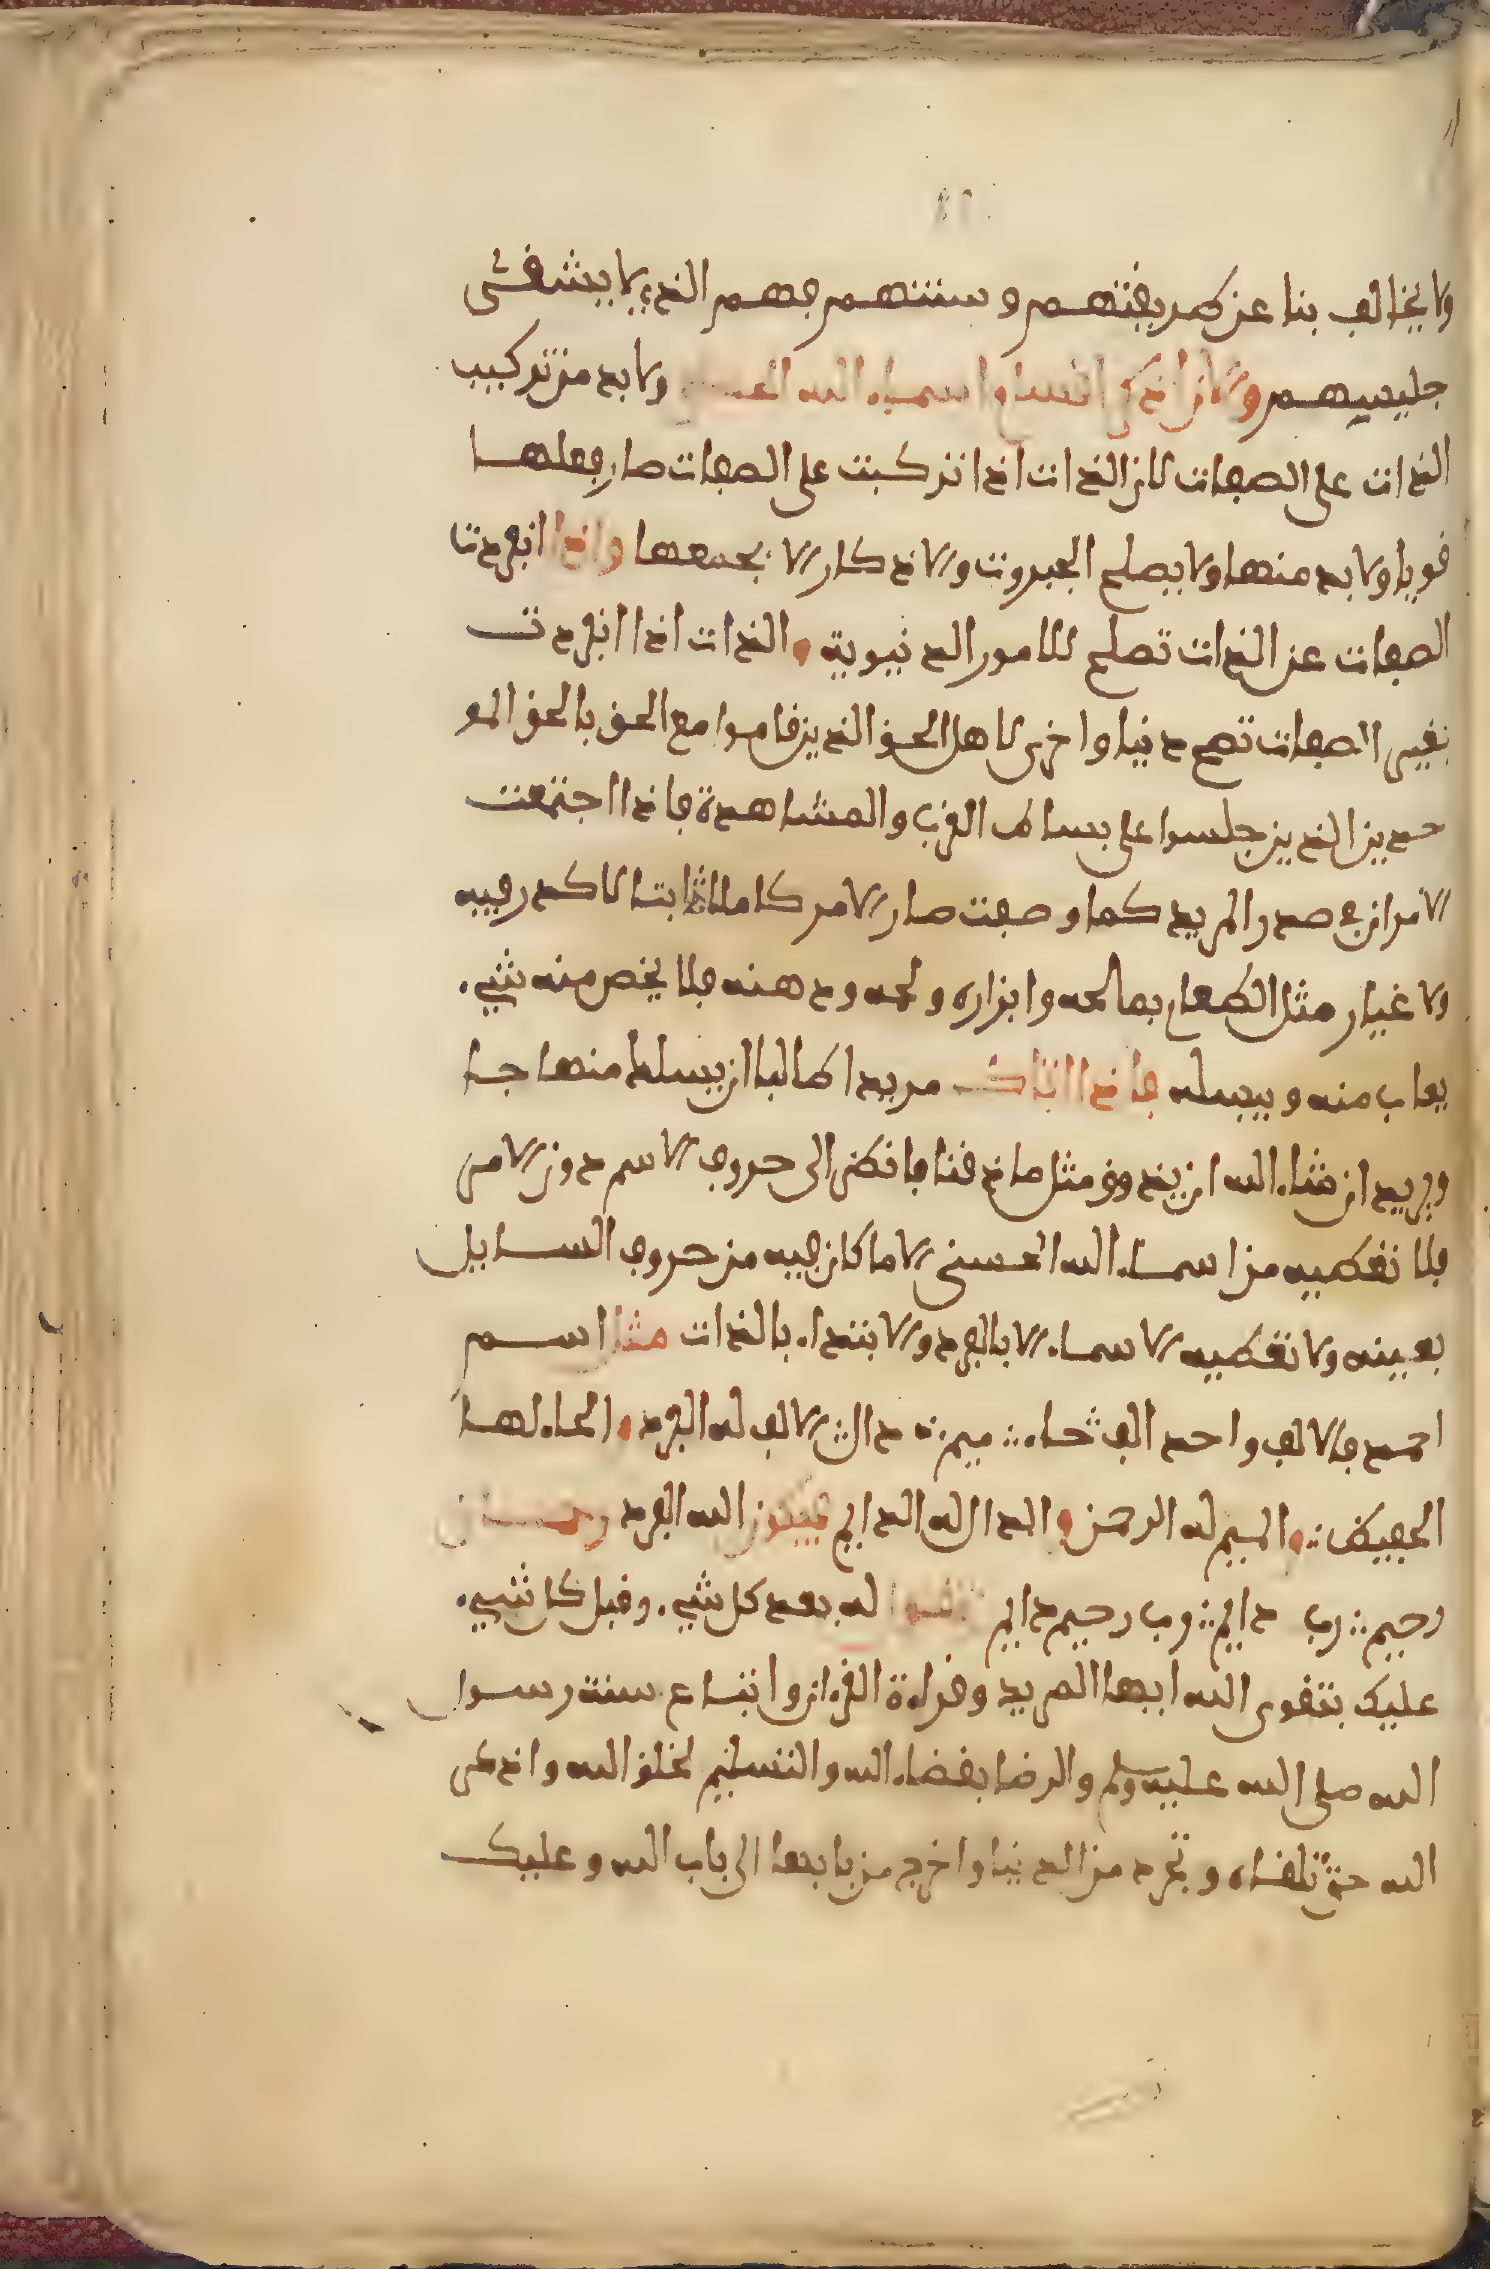 ولا يخالف بنا عن طريقتهم وسنتهم فهم الذي لا يشقى
جليسهم ولان اذكر اسماء الله ولا بد من تركيب
الذات على الصفات لان الذات اذا تركبت على الصفات صار فعلها
قويا ولا بد منها ولا يصلح الجبروت والاذكار الا بجمعها واذا انفردت
الصفات عن الذات تصلح للامور الدنيوية والذات اذا انفردت
بغير الصفات تصح دنيا واخرى لاهل الحق الذين قاموا مع الحق بالحق المو
حدين الذين جلسوا على بساط القرب والمشاهدة فاذا اجتمعت
الامران في صدر المريد كما وصفت صار الامر كاملا ثابتا لا كدر فيه
ولا غيار مثل الطعام بمالحه وابزاره ولحمه ودهنه فلا يخص منه شيء
يعاب منه ويبسله فاذا اتاك مريدا طالبا ان يسلك منهاجا
ويريد ان شاء الله ان يذوق مثل ما ذقنا فانظر الى حروف الاسم دون الامر
فلا تعطيه من اسماء الله الحسنى الا ما كان فيه من حروف السايل
بعينه ولا تعطيه الاسماء الا بالفرد والابتداء بالذات مثل اسم
احمد فالالف واحد الف حاء ميم دال الالف له الفرد والحاء لها
الحفيظ والميم له الرحمن والدال له الدايم فيكون الله الفرد رحمان
رحيم رب دايم رب رحيم دايم له بعد كل شيء وقبل كل شيء
عليك بتقوى الله ايها المريد وقراءة القرءان واتباع سنة رسول
الله صلى الله عليه وسلم والرضا بقضاء الله والتسليم لخلق الله واذكر
الله حتى تلقاه وتجرد من الدنيا واخرج من بابها الى باب الله وعليك